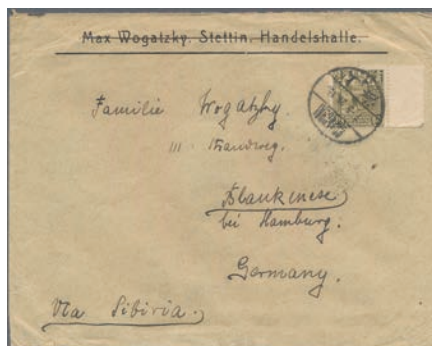 Max Wogatzky. Stettin, Handelshalle.
Familie Wogatzky.
111 Strandweg.
Blankenese
bei Hamburg.
Germany.
Via Sibiria.